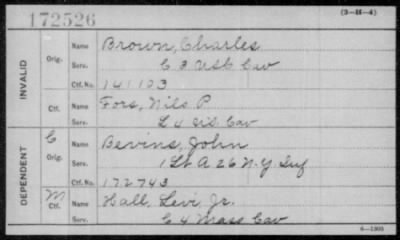 172526
(3-H-4)
INVALID
Orig. Name Brown, Charles
Serv. C 3 USC Cav
Ctf. No. 141103
Ctf. Name Fors, Nils P
Serv. L 4 US. Cav
DEPENDENT
C
Orig. Name Bevins, John
Serv. 1 Lt A 26 N.Y. Inf
Ctf. No. 172743
M
Ctf. Name Hall, Levi, Jr.
Serv. C 4 Mass Cav